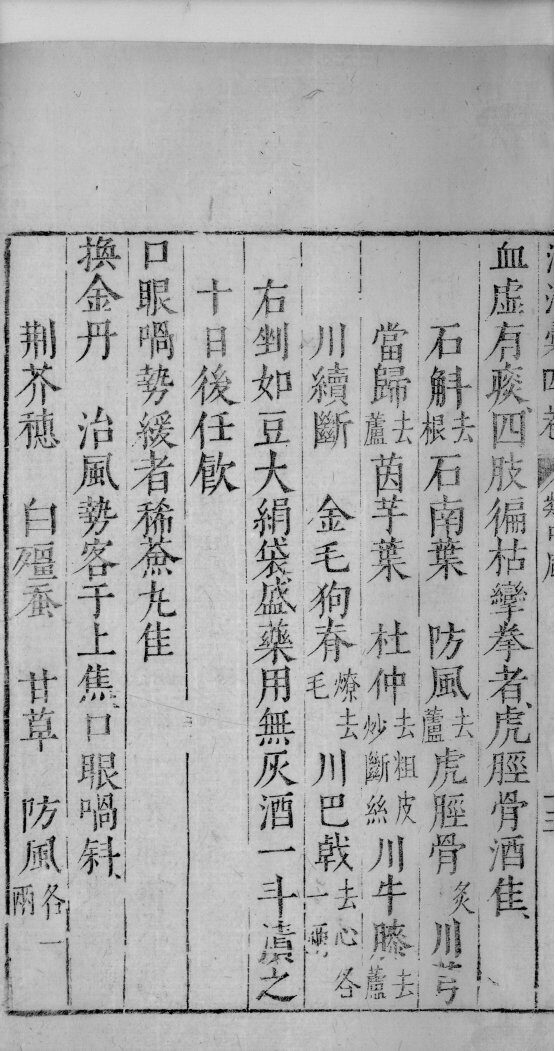 血虛有痰四肢徧枯攣拳者虎脛骨酒隹
石斛去根石南葉　防風去蘆虎脛骨炙川芎
當歸去蘆茵芋葉　杜仲去粗皮炒斷絲川牛膝去蘆
川續斷　金毛狗脊燎去毛　川巴戟去心各一兩
右剉如豆大絹袋盛藥用無灰酒一斗漬之
十日後任飮
口眼喎勢緩者稀薟丸隹
換金丹　治風勢客于上焦口眼喎斜
荆芥穗　白殭蚕　甘草　防風各一兩